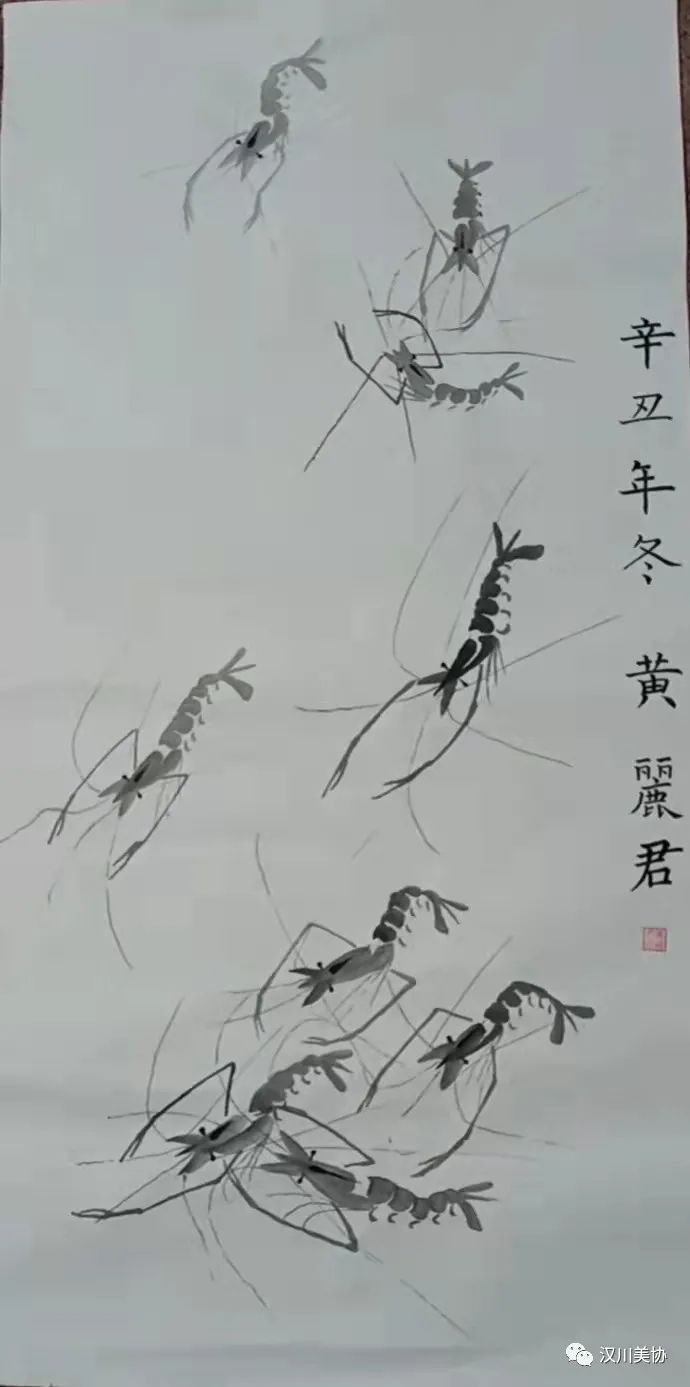 辛丑年冬 黄麗君
汉川美协